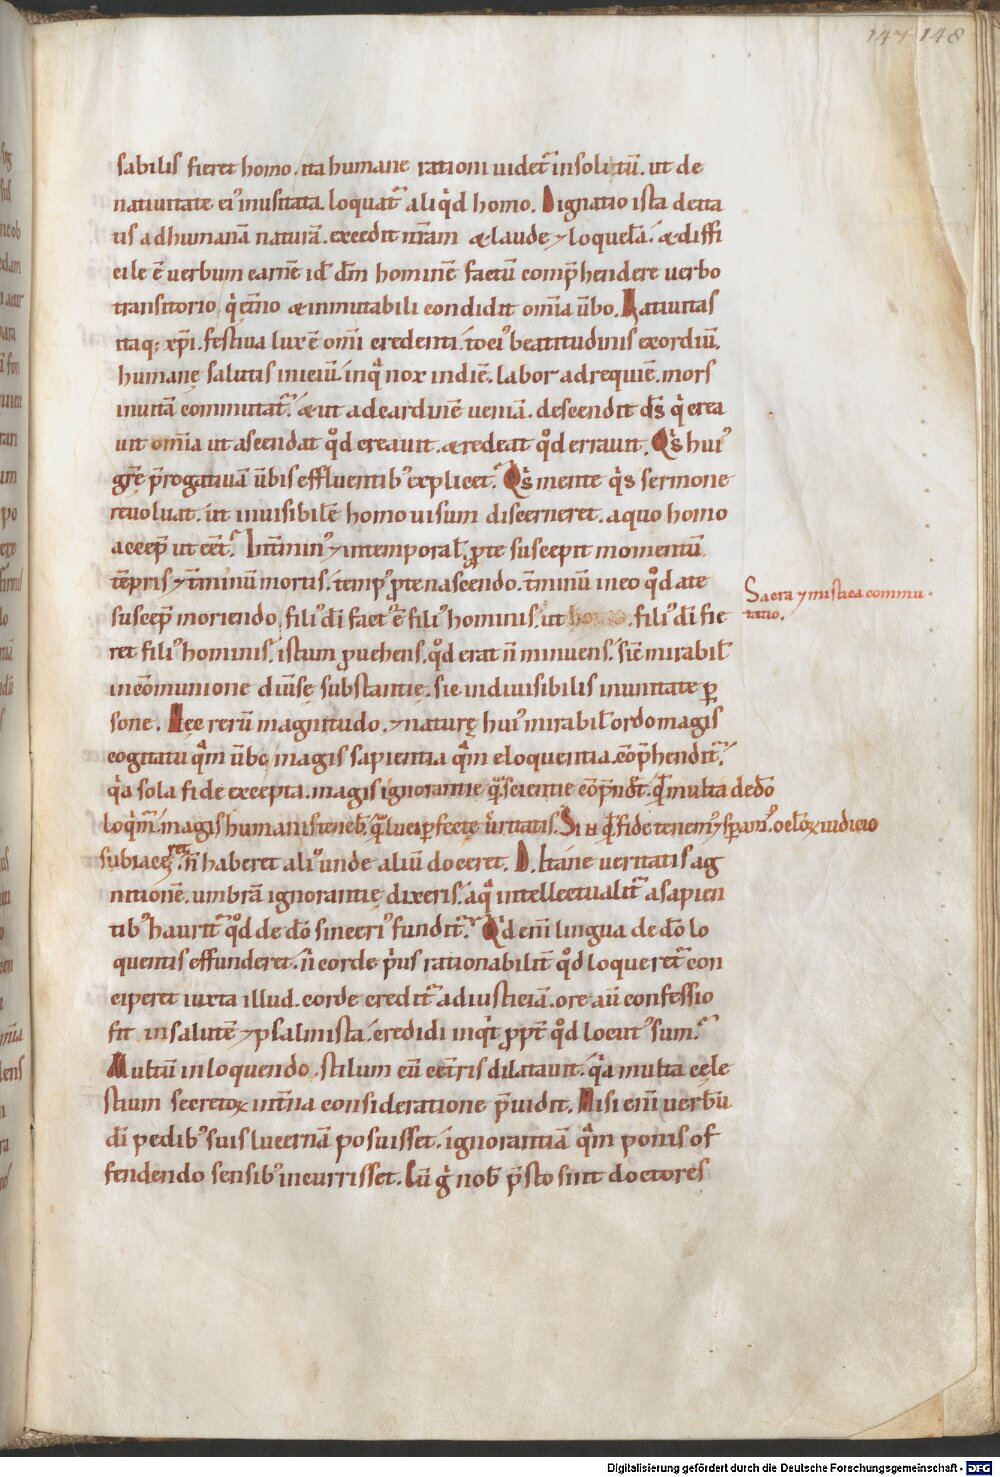 147 148
sabilis fieret homo. ita humane rationi uidet̄ insolitū. ut de
natiuitate ei᾽ inusitata loquat̄ aliq̇d homo. Dignatio ista deita
tis ad humanā naturā. excedit nr̄am & laudē ⁊ loquelā. & diffi
cile ē uerbum carnē id̄ dm̄ hominē factū comp̄hendere uerbo
transitorio. q̇ et̄no & inmutabili condidit om̄ia ūbo. Natiuitas
itaq; xp̄i. festiua lux ē om̄i credenti. toci᾽ beatitudinis exordiū.
humanę salutis iniciū. in q̇ nox in diē. labor ad requiē. mors
in uitā commutat̄. & ut adeardinē ueniā. descendit d̄s q̇ crea
uit om̄ia ut ascendat qd̄ creauit. & redeat qd̄ errauit. Qi̇s hui᾽
gr̄e p̄rogatiuā ūbis effluentib᾽ explicet. Qi̇s mente qi̇s sermone
reuoluat. ut inuisibilē homo uisum discerneret. a quo homo
accep̄ ut eēt. Int̄min᾽ ⁊ intemporal̄ p̱ te suscepit momentū
tēpris ⁊ t̄minū mortis. temp᾽ p̱ te nascendo. t̄minū in eo qd̄ a te
suscep̄ moriendo. fili᾽ dī fact᾽ ē fili᾽ hominis. ut fili᾽ dī fie
ret fili᾽ hominis. istum p̱uehens. qd̄ erat n̄ minuens. sic̄ mirabil̄
in cōmunione diūse substantię. sic indiuisibilis in unitate p̱
sone. Hęc rerū magnitudo. ⁊ naturę hui᾽ mirabil̄ ordo magis
cogitatu qm̄ ūbo magis sapientia qm̄ eloquentia cōp̄hendit̄.
q̇a sola fide excepta. magis ignorantie qm̄ scientie cōp̄ndit̄. q̇ multa de dō
loqm̄. magis humanis teneb̄. q̄ luci p̱fectę ūritatis. Si n̄ q̇ fide tenem᾽ ⁊ speram᾽. oclōꝝ iudicio
subiaceret. n̄ haberet ali᾽ unde aliū doceret. D. hanc ueritatis ag
nitionē. umbrā ignorantię dixeris. a q̇ intellectualit̄ a sapien
tib᾽ haurit̄ qd̄ de dō sinceri᾽ fundit̄. Qd̄ eni lingua de dō lo
quentis effunderet. n̄ corde ṗus rationabilit̄ qd̄ loqueret̄ con
ciperet iuxta illud. corde credit̄ ad iusticiā. ore aū confessio
fit in salutē ⁊ psalmista. credidi inq̇t p̱pt̄ qd̄ locut᾽ sum.
Multū in loquendo. stilum cū cet̄ris dilatauit. q̇a multa cęle
stium secretoꝝ int̄na consideratione p̄uidit. Nisi eni uerbū
dī pedib᾽ suis lucernā posuisset. ignorantiā qm̄ ponis of
fendendo sensib᾽ incurrisset. Cū g̊ nob̄ p̄sto sint doctores
Sacra ⁊ mistica commu
tatio.
Digitalisierung gefördert durch die Deutsche Forschungsgemeinschaft - DFG